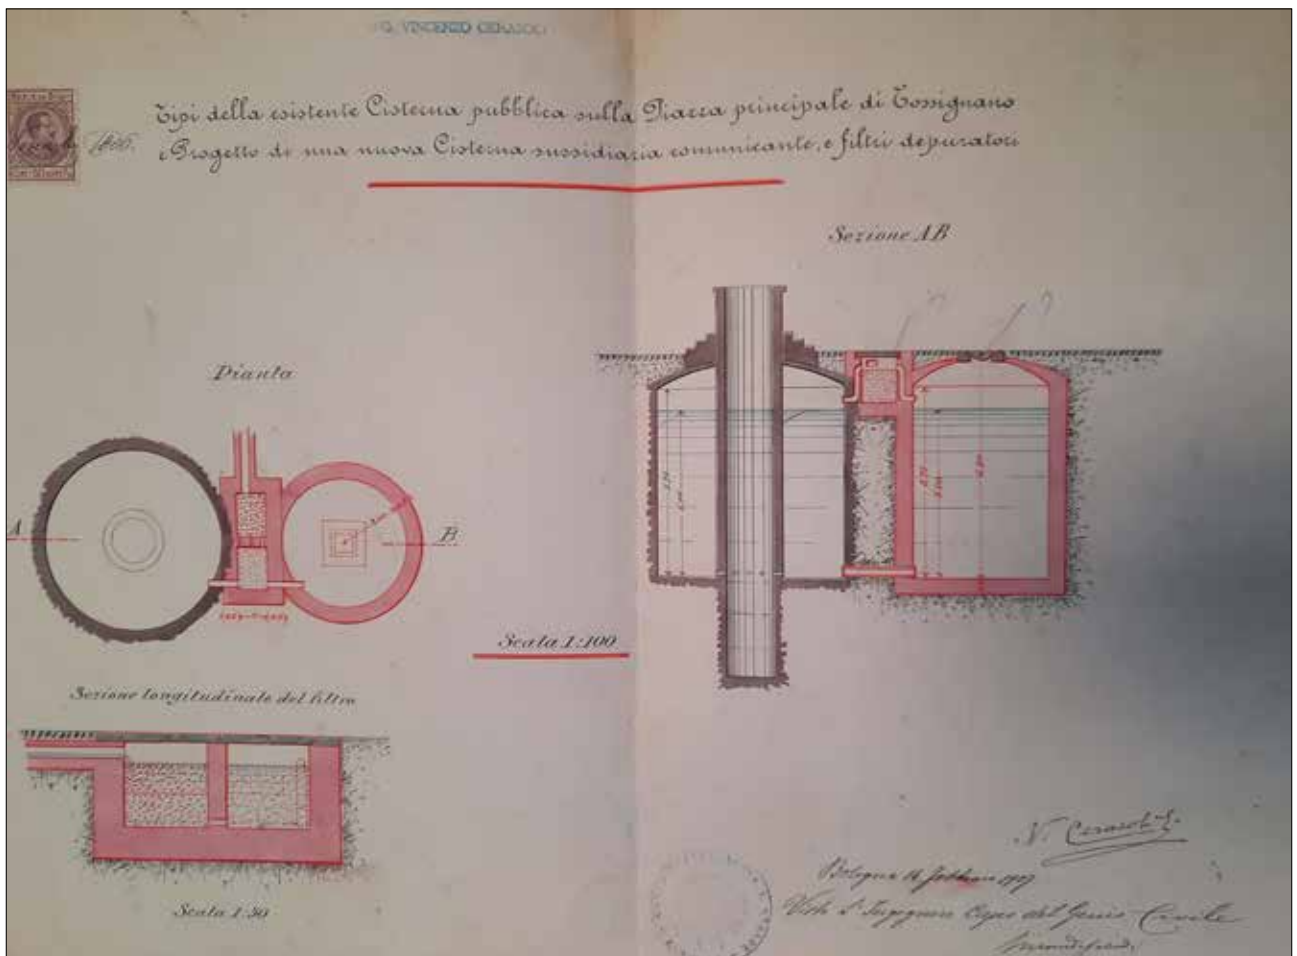 G. VINCENZO CERASOLI
Tipi della esistente Cisterna pubblica sulla Piazza principale di Tossignano
e Progetto di una nuova Cisterna sussidiaria comunicante, e filtri depuratori
Sezione AB
Pianta
A
B
Scala 1:100
Sezione longitudinale del filtro
Scala 1:50
V. Cerasoli
Bologna 14 febbraio 1907
Visto L'Ingegnere Capo del Genio Civile